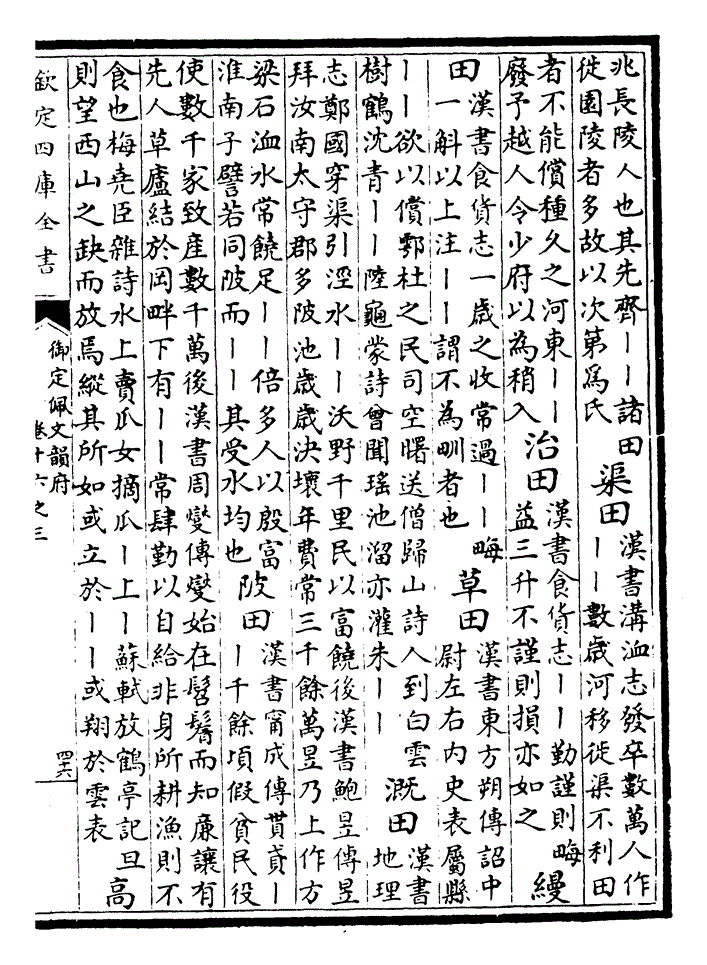 兆長陵人也其先齊丨丨諸田
徙園陵者多故以次第為氏
渠田
漢書溝洫志發卒數萬人作
丨丨數歲河移徙渠不利田
者不能償種久之河東丨丨
廢予越人令少府以為稍入
治田
漢書食貨志丨丨勤謹則畮
益三升不謹則損亦如之
縵
田
漢書食貨志一歲之收常過丨丨畮
一斛以上注丨丨謂不為甽者也
草田
漢書東方朔傳詔中
尉左右內史表屬縣
丨丨欲以償鄠杜之民司空曙送僧歸山詩人到白雲
樹鶴沈青丨丨陸龜蒙詩曾聞瑤池溜亦灌朱丨丨
溉田
漢書
地理
志鄭國穿渠引涇水丨丨沃野千里民以富饒後漢書鮑昱傳昱
拜汝南太守郡多陂池歲歲決壞年費常三千餘萬昱乃上作方
梁石洫水常饒足丨丨倍多人以殷富
淮南子譬若同陂而丨丨其受水均也
陂田
漢書甯成傳貰貣丨
丨千餘頃假貧民役
使數千家致產數千萬後漢書周燮傳燮始在髫鬌而知廉讓有
先人草廬結於岡畔下有丨丨常肆勤以自給非身所耕漁則不
食也梅堯臣雜詩水上賣瓜女摘瓜丨上丨蘇軾放鶴亭記旦
則望西山之缺而放焉縱其所如或立於丨丨或翔於雲表
高
欽定四庫全書
御定佩文韻府
卷十六之三
四六